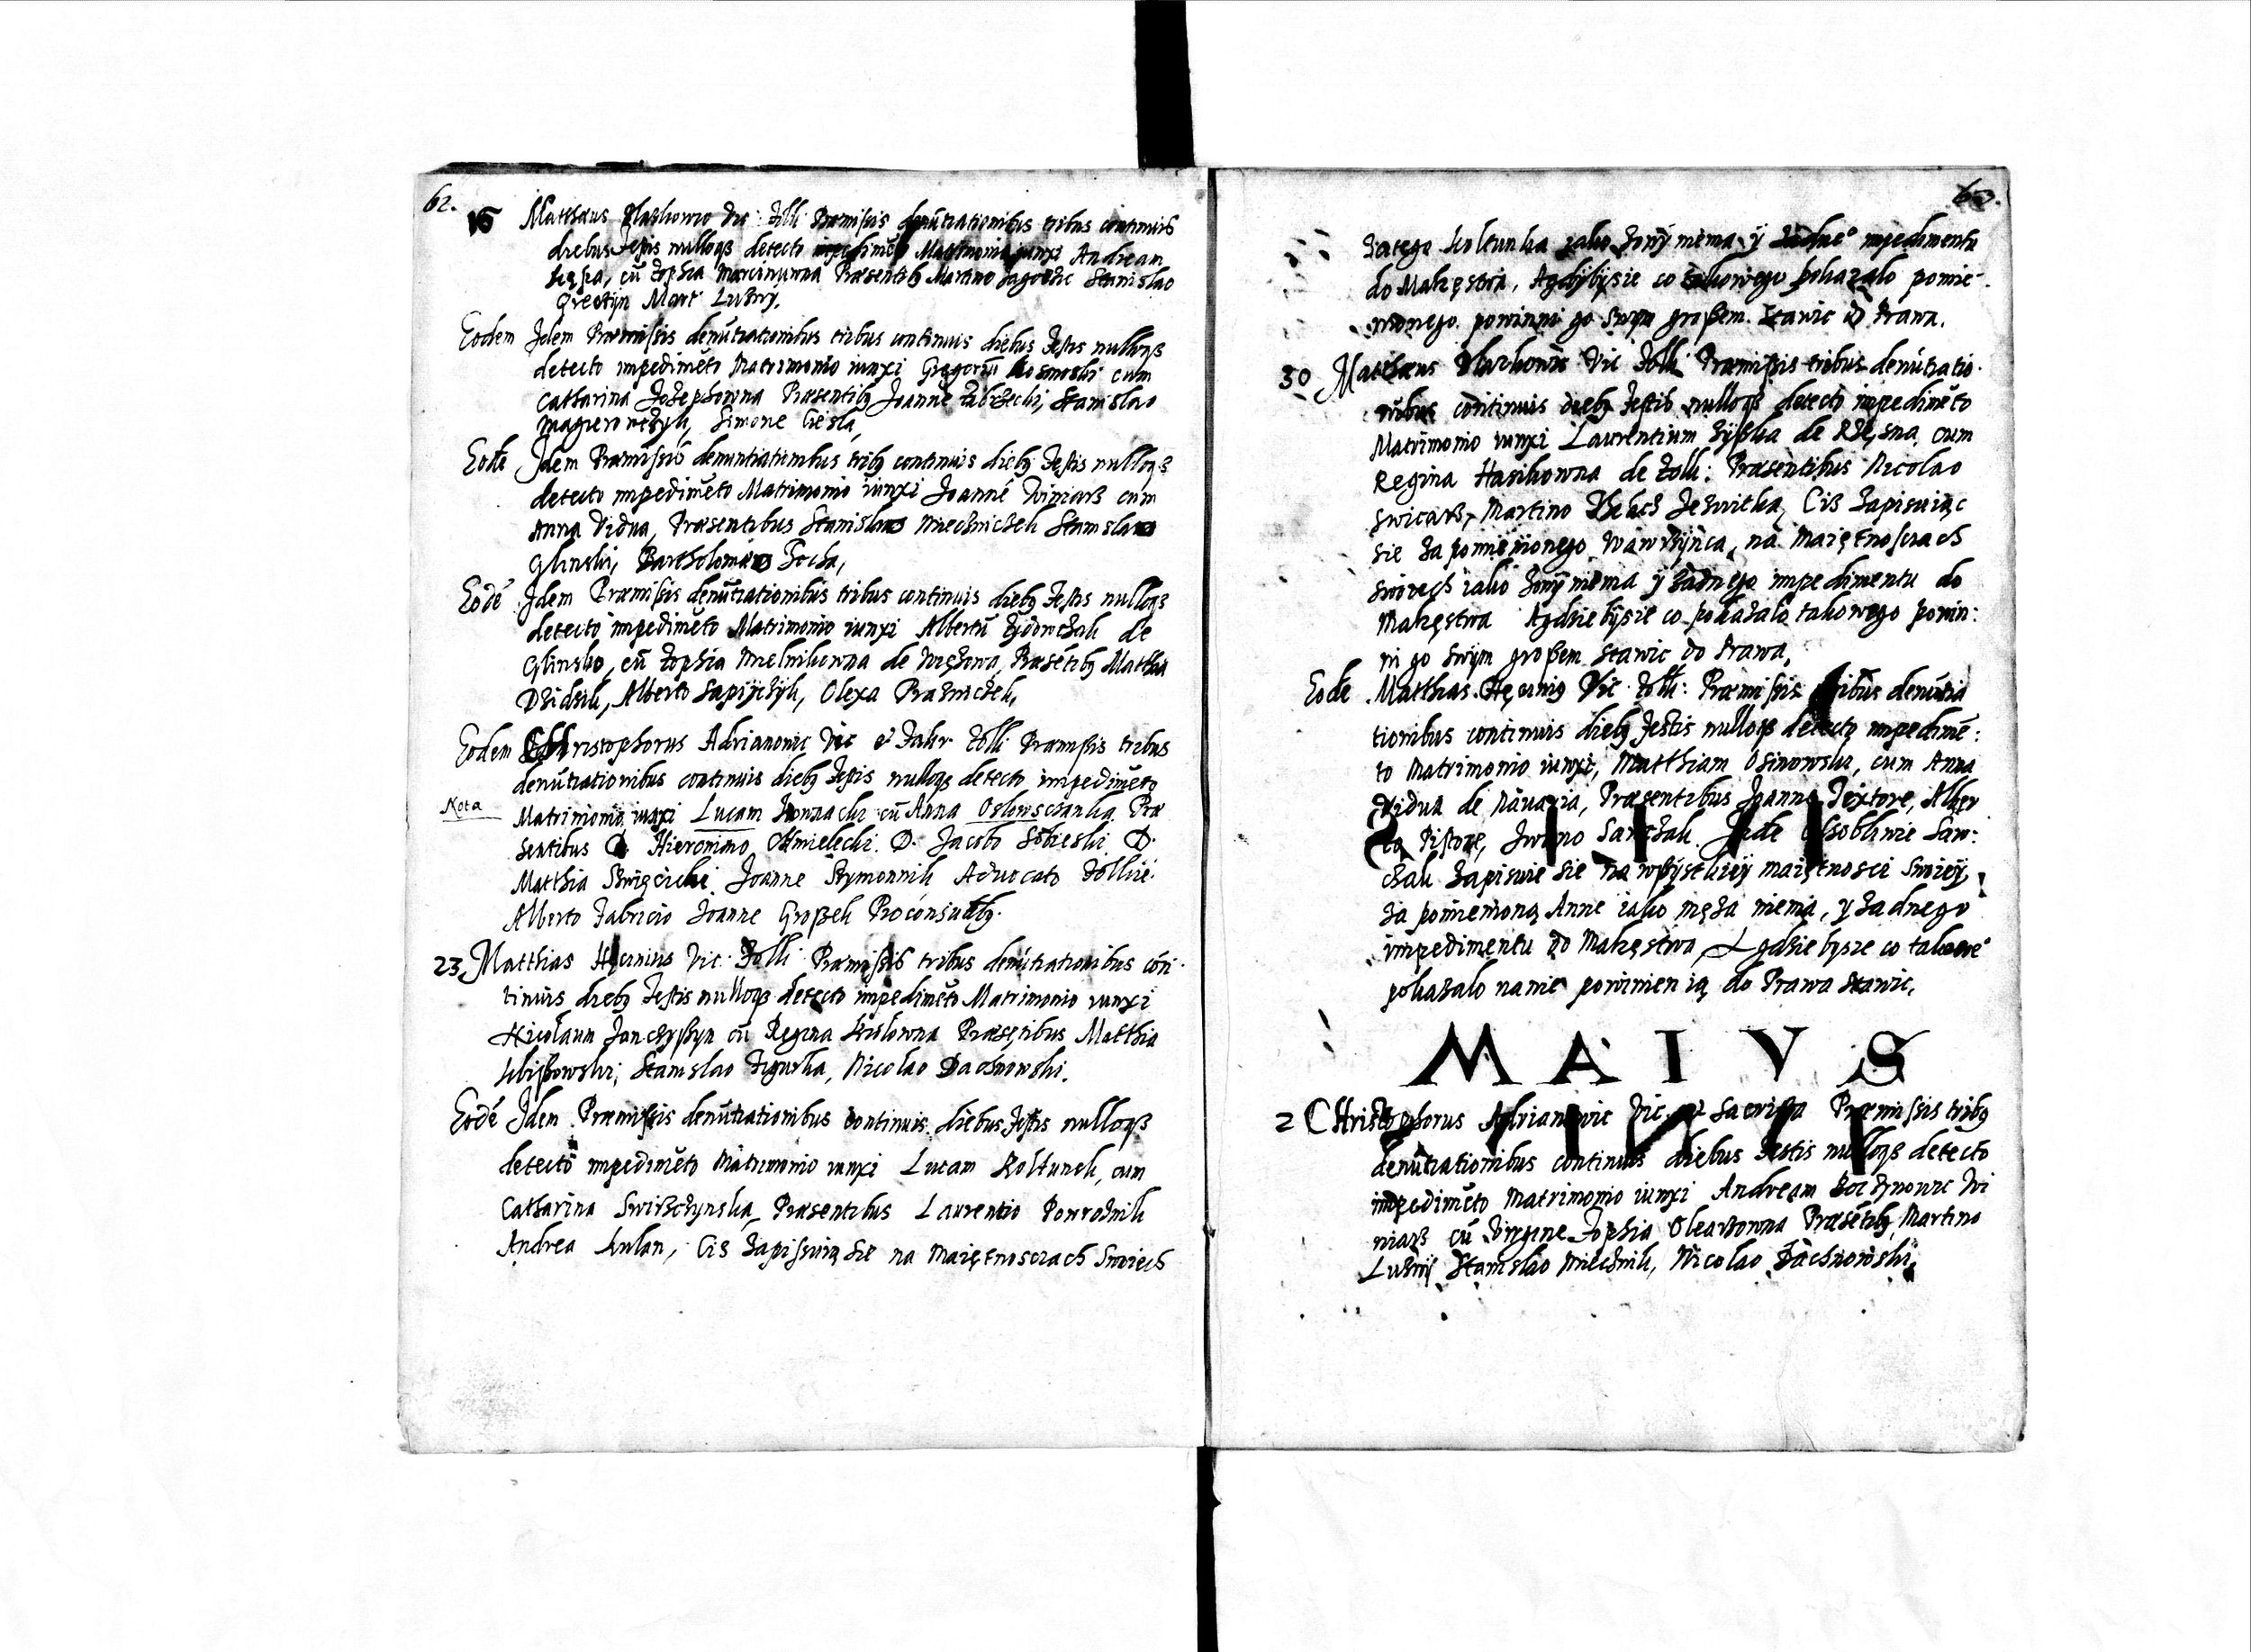 62.
16 Matthæus Vic: Zolk: Præmissis denutiationibus tribus continuis
diebus Festis nulloqз detecto impedimeto Matrimonio iunxi Andream
cū Zophia Præsentibз Martino Stanislao
Mart Luzny.
Eodem Idem Præmissis denūtiationibus tribus continuis diebus Festis nulloqз
detecto impedimēto Matrimonio iunxi Gregoriū Kosmoski cum
Catharina Jozephowna Præsentibз Joanne Zabrzecki, Stanislao
Simone Ciesla,
Eodē Idem Præmissis denuntiationibus tribз continuis diebз Festis nulloqз
detecto impedimēto Matrimonio iunxi Joannē Winiarз cum
Anna Vidua, Præsentibus Stanislao Mieczniczek Stanislao
Glinski, Bartholomæo
Eodē Idem Præmissis denūtiationibus tribus continuis diebз Festis nulloqз
detecto impedimēto Matrimonio iunxi Albertū Zydowczak de
Glinsko, cū Zophia Mielnikowna de Præsētibз Matthia
Alberto Olexa
Eodem Christophorus Adrianowic Vic Zolk: Præmissis tribus
denūtiationibus continuis diebз Festis nulloqз detecto impedimēto
Nota Matrimonio, iunxi Lucam cū Anna Præ
sentibus D. Hieronimo Chmielecki. D. Jacobo Sobieski D.
Matthia Joanne Szymonnik Advocato
Alberto Fabricio Joanne Groзek Proconsulibз.
23 Matthias Vic: Zolk: Præmissis tribus denūtiationibus con
tinuis diebз Festis nulloqз detecto impedimēto Matrimonio iunxi
Nicolaum cū Regina Præsētibus Matthia
Stanislao Figurka, Nicolao Dachnowski.
Eodē Idem Præmissis denūtiationibus continuis diebus Festis nulloqз
detecto impedimēto Matrimonio iunxi Lucam Koltunek, cum
Catharina Præsentibus Laurentio Powroznik
Andrea Kulan, Cis Zapisuią sie na Maiętnosciach Swoiech
Zatego Koltunka iako Zony niema y Zadne° impedimentu
do Malzęstwa, Agdybysie co takowego pokazalo pomie
nionego powinni go swym groзem Stawic do Prawa.
30 Matthæus Vic Zolk: Præmissis tribus denūtiatio
nibus continuis diebз Festis nulloqз detecto impedimēto
Matrimonio iunxi Laurentium de cum
Regina Hasikowna de Zolk: Præsentibus Nicolao
Martino Ciз Zapisuiąc
sie Za pomienionego Wawrzynca, na Maiętnosciach
swoiech iako Zony niema y Zadnego impedimentu do
Malzęstwa Agdziebysie co pokazalo takowego powin:
ni go swym groзem Stawic do Prawa,
Eodē Matthias Vic: Zolk: Præmissis tribus denūtia
tionibus continuis diebз Festis nulloqз detecto impedimē:
to Matrimonio iunxi, Matthiam Osinowski, cum Anna
Vidua de Navaria, Præsentibus Joanne Textore, Alber
to Pistore, Sawczak
czak Zapisuie sie na wзystkiey maiętnosci Swoiey,
Za pomienioną Anne iako męza niema, y Zadnego
impedimentu do Malzęstwa Agdzie bysie co takowe°
pokazalo nanie powinien ią do Prawa Stawic,
MAIVS
2 CHristophorus Adrianowic Vic: et Sacrista Præmissis tribз
denūtiationibus continuis diebus Festis nulloqз detecto
impedimēto Matrimonio iunxi Andream Wi
niarз cū Virgine Zophia Olearzowna Præsētibз Martino
Luzny Stanislao Miecznik, Nicolao Dachnowski,